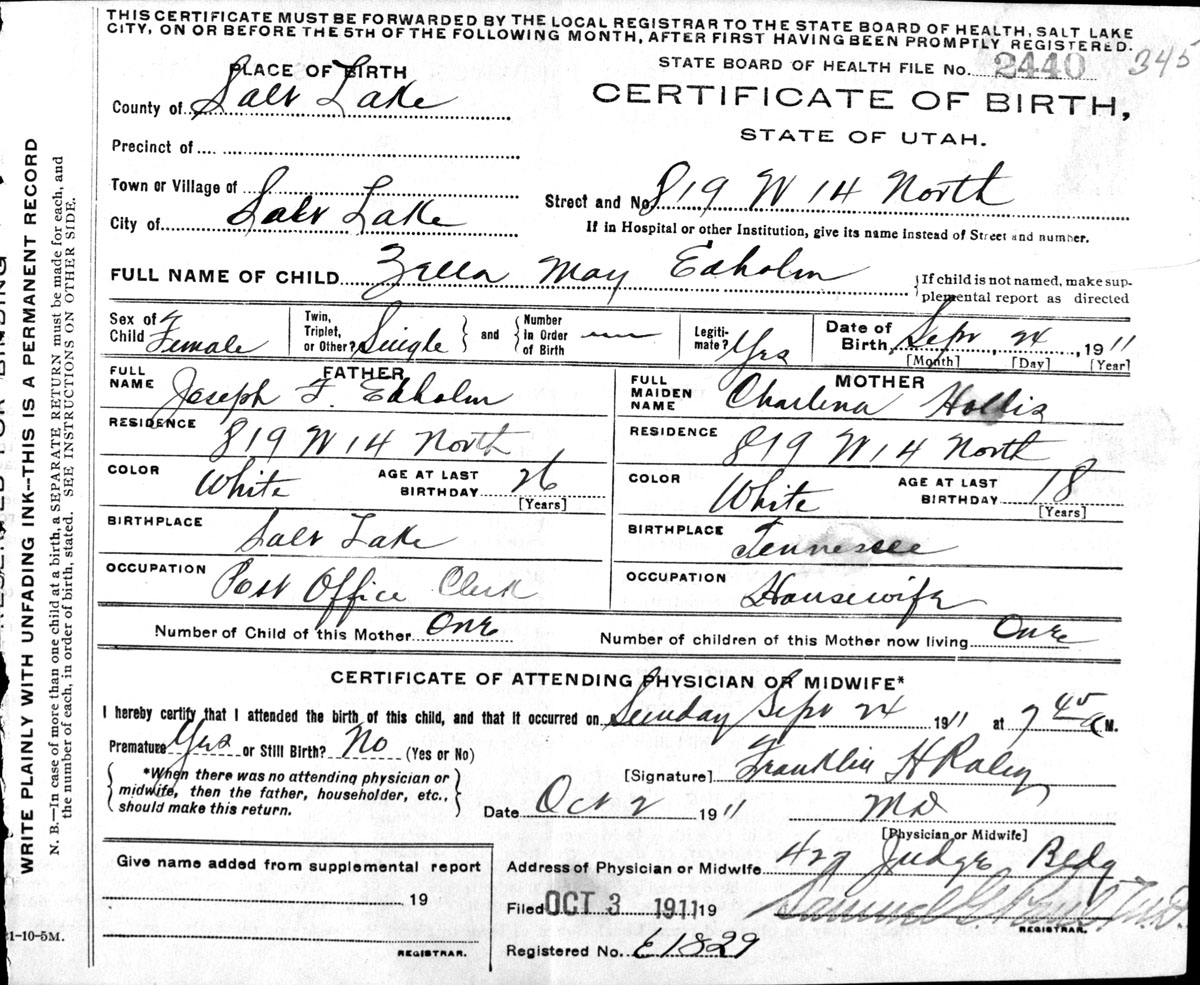 THIS CERTIFICATE MUST BE FORWARDED BY THE LOCAL REGISTRAR TO THE STATE BOARD OF HEALTH, SALT LAKE
CITY, ON OR BEFORE THE 5TH OF THE FOLLOWING MONTH, AFTER FIRST HAVING BEEN PROMPTLY REGISTERED.
STATE BOARD OF HEALTH FILE No. 2440 345
PLACE OF BIRTH
County of Salt Lake
CERTIFICATE OF BIRTH,
STATE OF UTAH.
Precinct of
Town or Village of
City of Salt Lake
Street and No. 819 W 14 North
If in Hospital or other Institution, give its name instead of Street and number.
FULL NAME OF CHILD Zella May Edholm
If child is not named, make sup-
plemental report as directed
Sex of Child Female
Twin, Triplet, or Other? Single
and Number in Order of Birth —
Legiti-mate? Yes
Date of Birth, Sept, 24, 1911
[Month] [Day] [Year]
FATHER
FULL NAME Joseph F. Edholm
RESIDENCE 819 W 14 North
COLOR White AGE AT LAST BIRTHDAY 26
[Years]
BIRTHPLACE Salt Lake
OCCUPATION Post Office Clerk
MOTHER
FULL MAIDEN NAME Charlena Hollis
RESIDENCE 819 W 14 North
COLOR White AGE AT LAST BIRTHDAY 18
[Years]
BIRTHPLACE Tennessee
OCCUPATION Housewife
Number of Child of this Mother One Number of children of this Mother now living One
CERTIFICATE OF ATTENDING PHYSICIAN OR MIDWIFE*
I hereby certify that I attended the birth of this child, and that it occurred on Sunday Sept 24 1911 at 7 45 A M.
Premature Yes or Still Birth? No (Yes or No)
*When there was no attending physician or
midwife, then the father, householder, etc.,
should make this return.
[Signature] Franklin H Raley
Date Oct 2 1911 MD
[Physician or Midwife]
Give name added from supplemental report
19
REGISTRAR.
Address of Physician or Midwife 429 Judge Bldg
Filed OCT 3 1911 19
REGISTRAR.
Registered No. E1829
WRITE PLAINLY WITH UNFADING INK--THIS IS A PERMANENT RECORD
N. B.—In case of more than one child at a birth, a SEPARATE RETURN must be made for each, and
the number of each, in order of birth, stated. SEE INSTRUCTIONS ON OTHER SIDE.
21-10-5M.